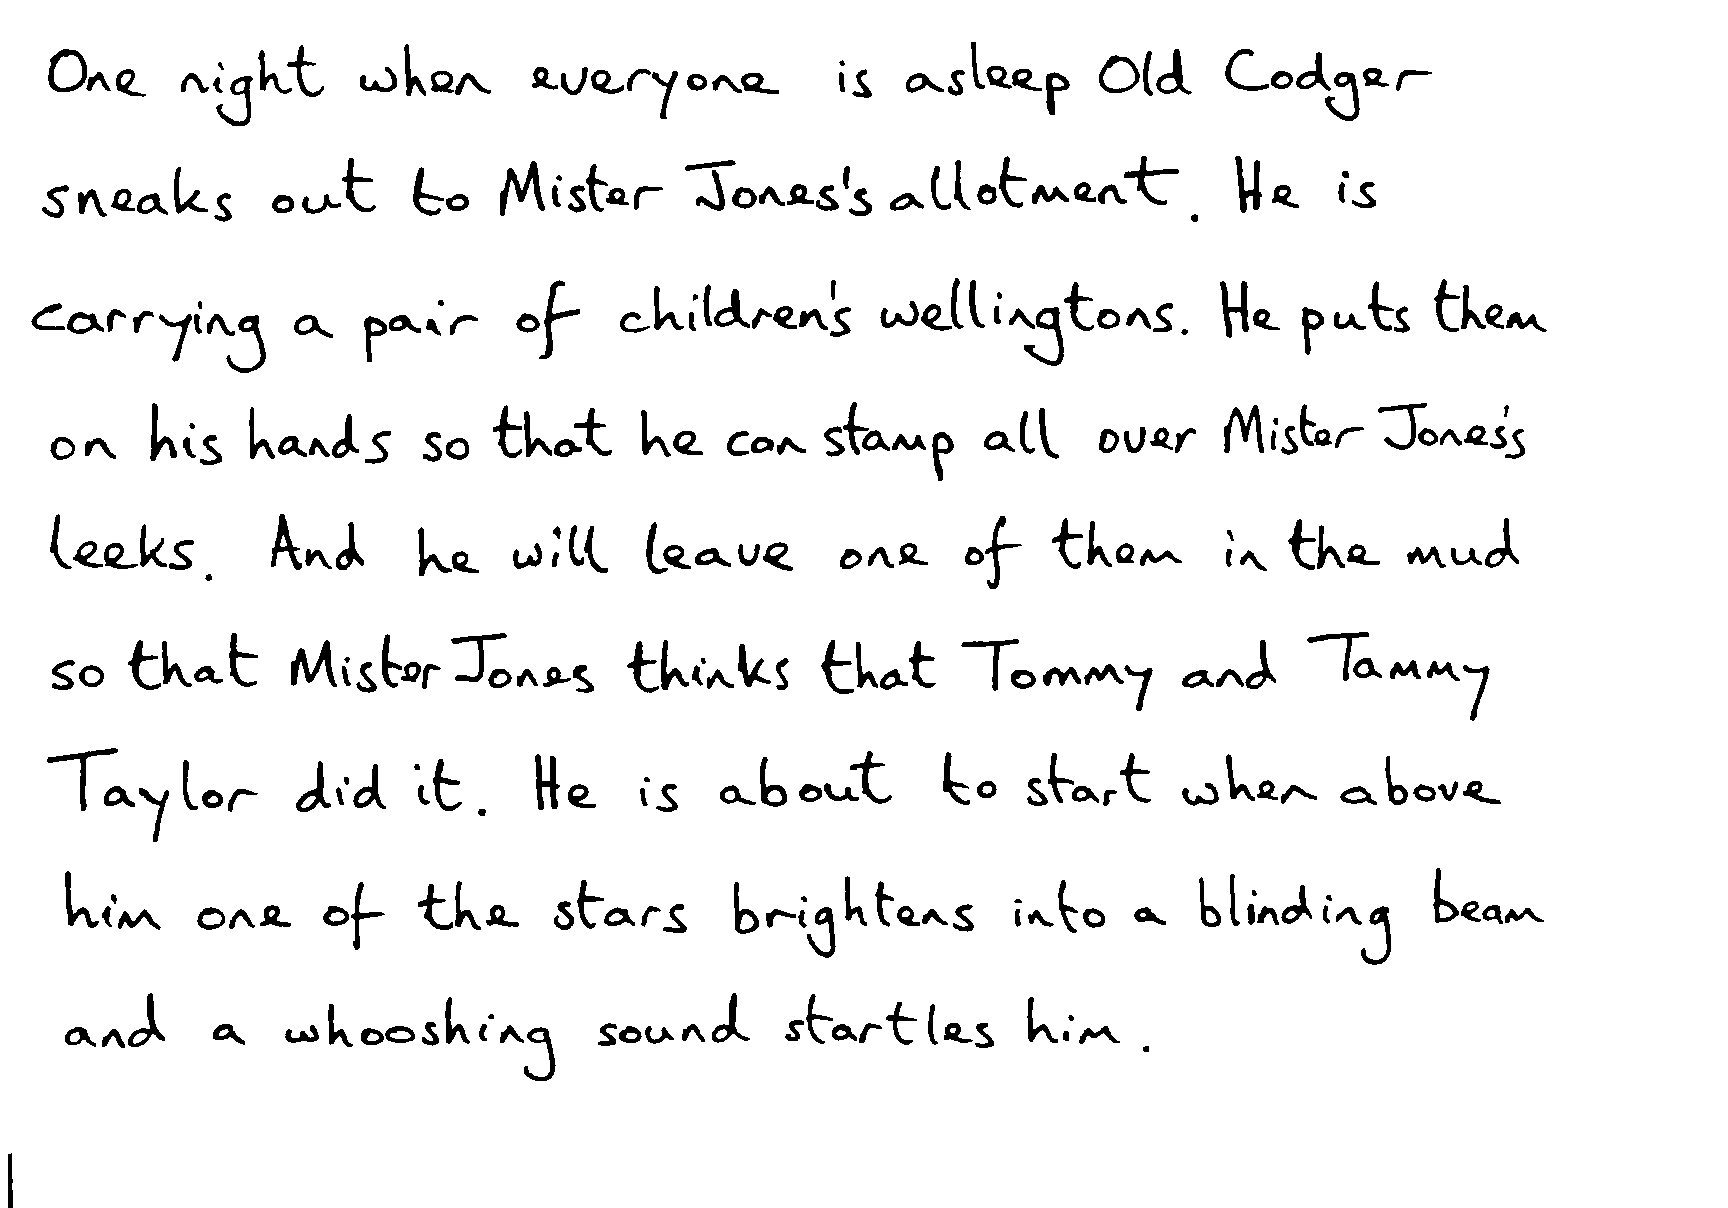 One night when everyone is asleep Old Codger
sneaks out to Mister Jones's allotment. He is
carrying a pair of children's wellingtons. He puts them
on his hands so that he can stamp all over Mister Jones's
leeks. And he will leave one of them in the mud
so that Mister Jones thinks that Tommy and Tammy
Taylor did it. He is about to start when above
him one of the stars brightens into a blinding beam
and a whooshing sound startles him.